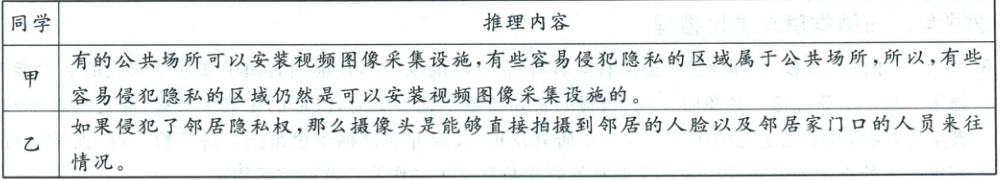 同学 推理内容
甲 有的公共场所可以安装视频图像采集设施,有些容易侵犯隐私的区域属于公共场所,所以,有些
容易侵犯隐私的区域仍然是可以安装视频图像采集设施的。
乙 如果侵犯了邻居隐私权,那么摄像头是能够直接拍摄到邻居的人脸以及邻居家门口的人员来往
情况。